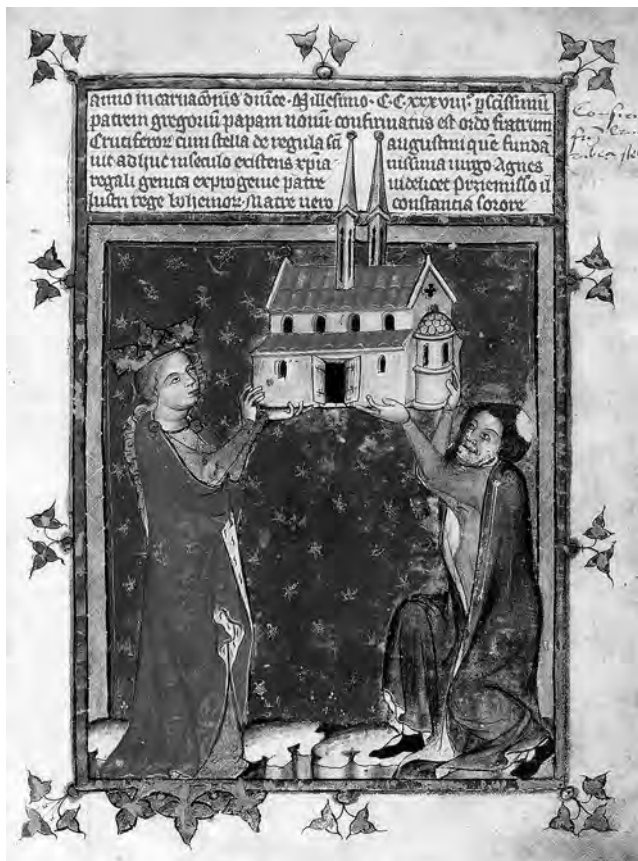 anno incarnacōnis dnīce · Millesimo · C·C·xxxviii· ꝑ scīssimū
patrem gregoriū papam nonū confirmatus est ordo fratrum
Cruciferoꝝ cum stella de regula scī augustini que funda
uit adhuc in seculo existens xp̄ia nissima uirgo Agnes
regali genita ex progenie patre uidelicet Przemislo il
lustri rege bohemoꝝ Matre uero constancia sorore